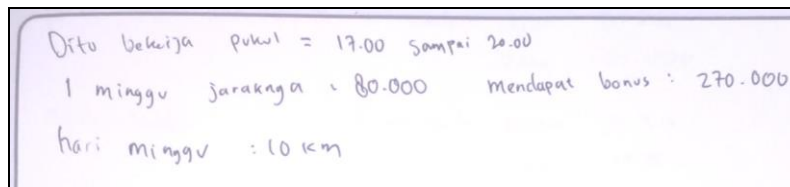 Dito bekerja pukul = 17.00 sampai 20.00
1 minggu jaraknya : 80.000 mendapat bonus : 270.000
hari minggu : 10 km